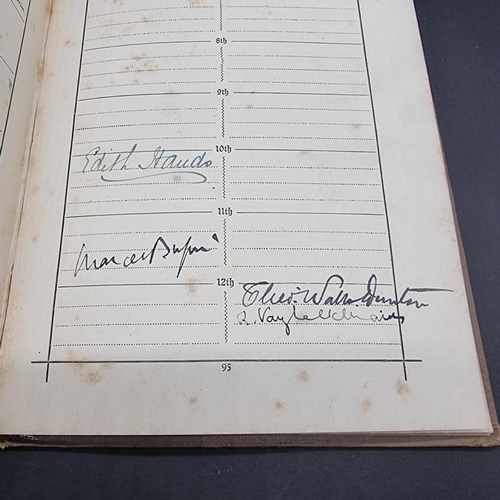 8th
9th
10th
Edith Hands
11th
Marcel Dupré
12th
Theo: Watts-Dunton
R. Vaughan Williams
95